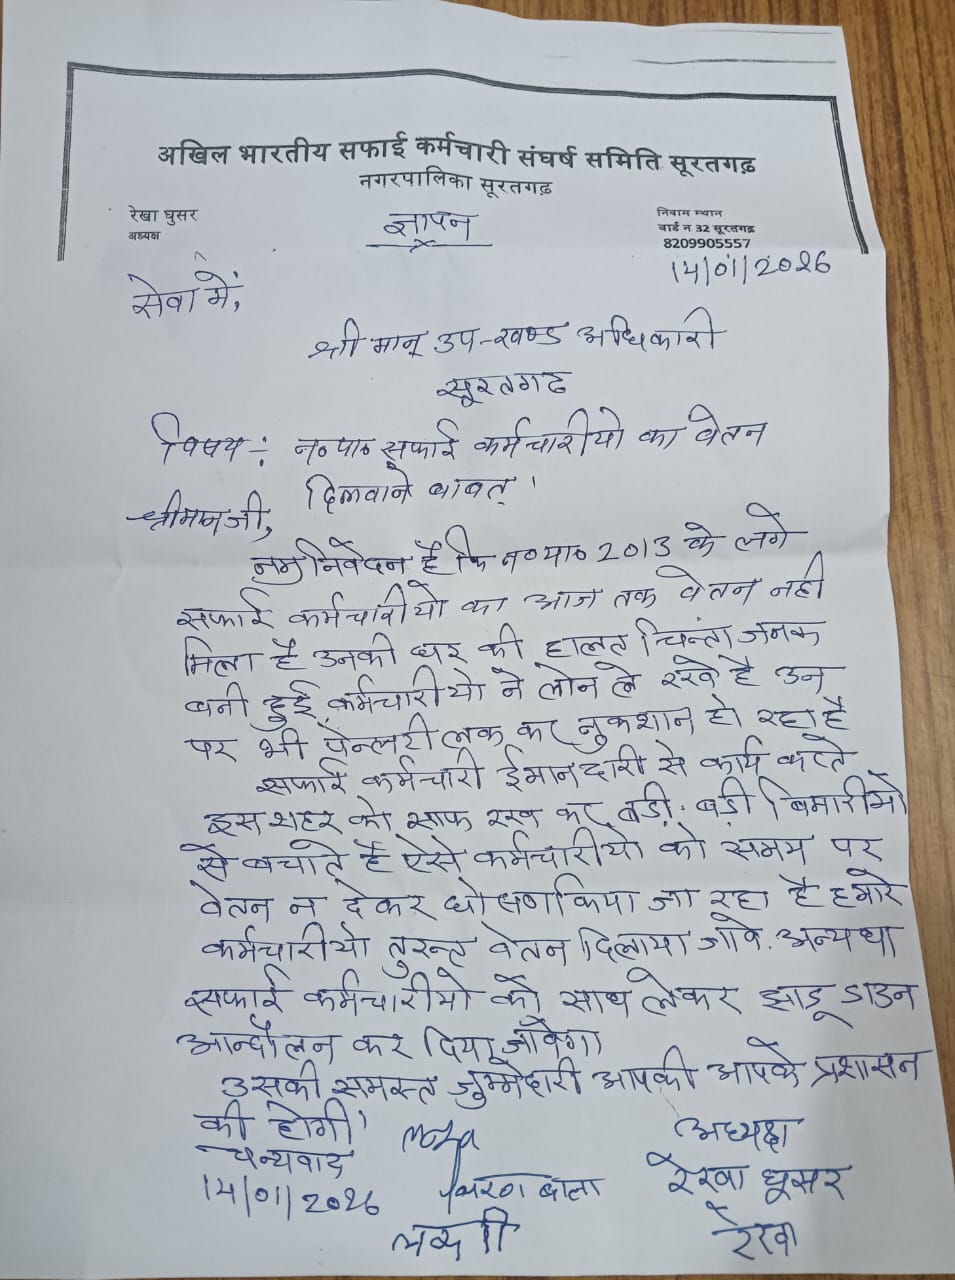 अखिल भारतीय सफाई कर्मचारी संघर्ष समिति सूरतगढ़
नगरपालिका सूरतगढ़
रेखा घुसर
अध्यक्ष
ज्ञापन
निवास स्थान
वार्ड न 32 सूरतगढ़
8209905557
14/01/2026
सेवा में,
श्री मान् उप-खण्ड अधिकारी
सूरतगढ
विषय :- न०पा० सफाई कर्मचारीयो का वेतन
दिलवाने बाबत्।
श्रीमानजी,
नम्र निवेदन है कि न०पा० 2013 के लगे
सफाई कर्मचारीयो का आज तक वेतन नही
मिला है उनकी घर की हालत चिन्ता जनक
बनी हुई कर्मचारीयो ने लोन ले रखे है उन
पर भी पेन्लटी लक कर नुकशान हो रहा है
सफाई कर्मचारी ईमानदारी से कार्य करते
इस शहर को साफ रख कर बड़ी. बड़ी बिमारीयों
से बचाते है ऐसे कर्मचारीयो को समय पर
वेतन न देकर किया जा रहा है हमारे
कर्मचारीयो तुरन्त वेतन दिलाया जावे. अन्यथा
सफाई कर्मचारीयो को साथ लेकर झाडू डाउन
आन्दोलन कर दिया जावेगा
उसकी समस्त जुम्मेदारी आपकी आपके प्रशासन
की होगी।
धन्यवाद
14/01/2026
बाला
अध्यक्ष
रेखा घूसर
रेखा